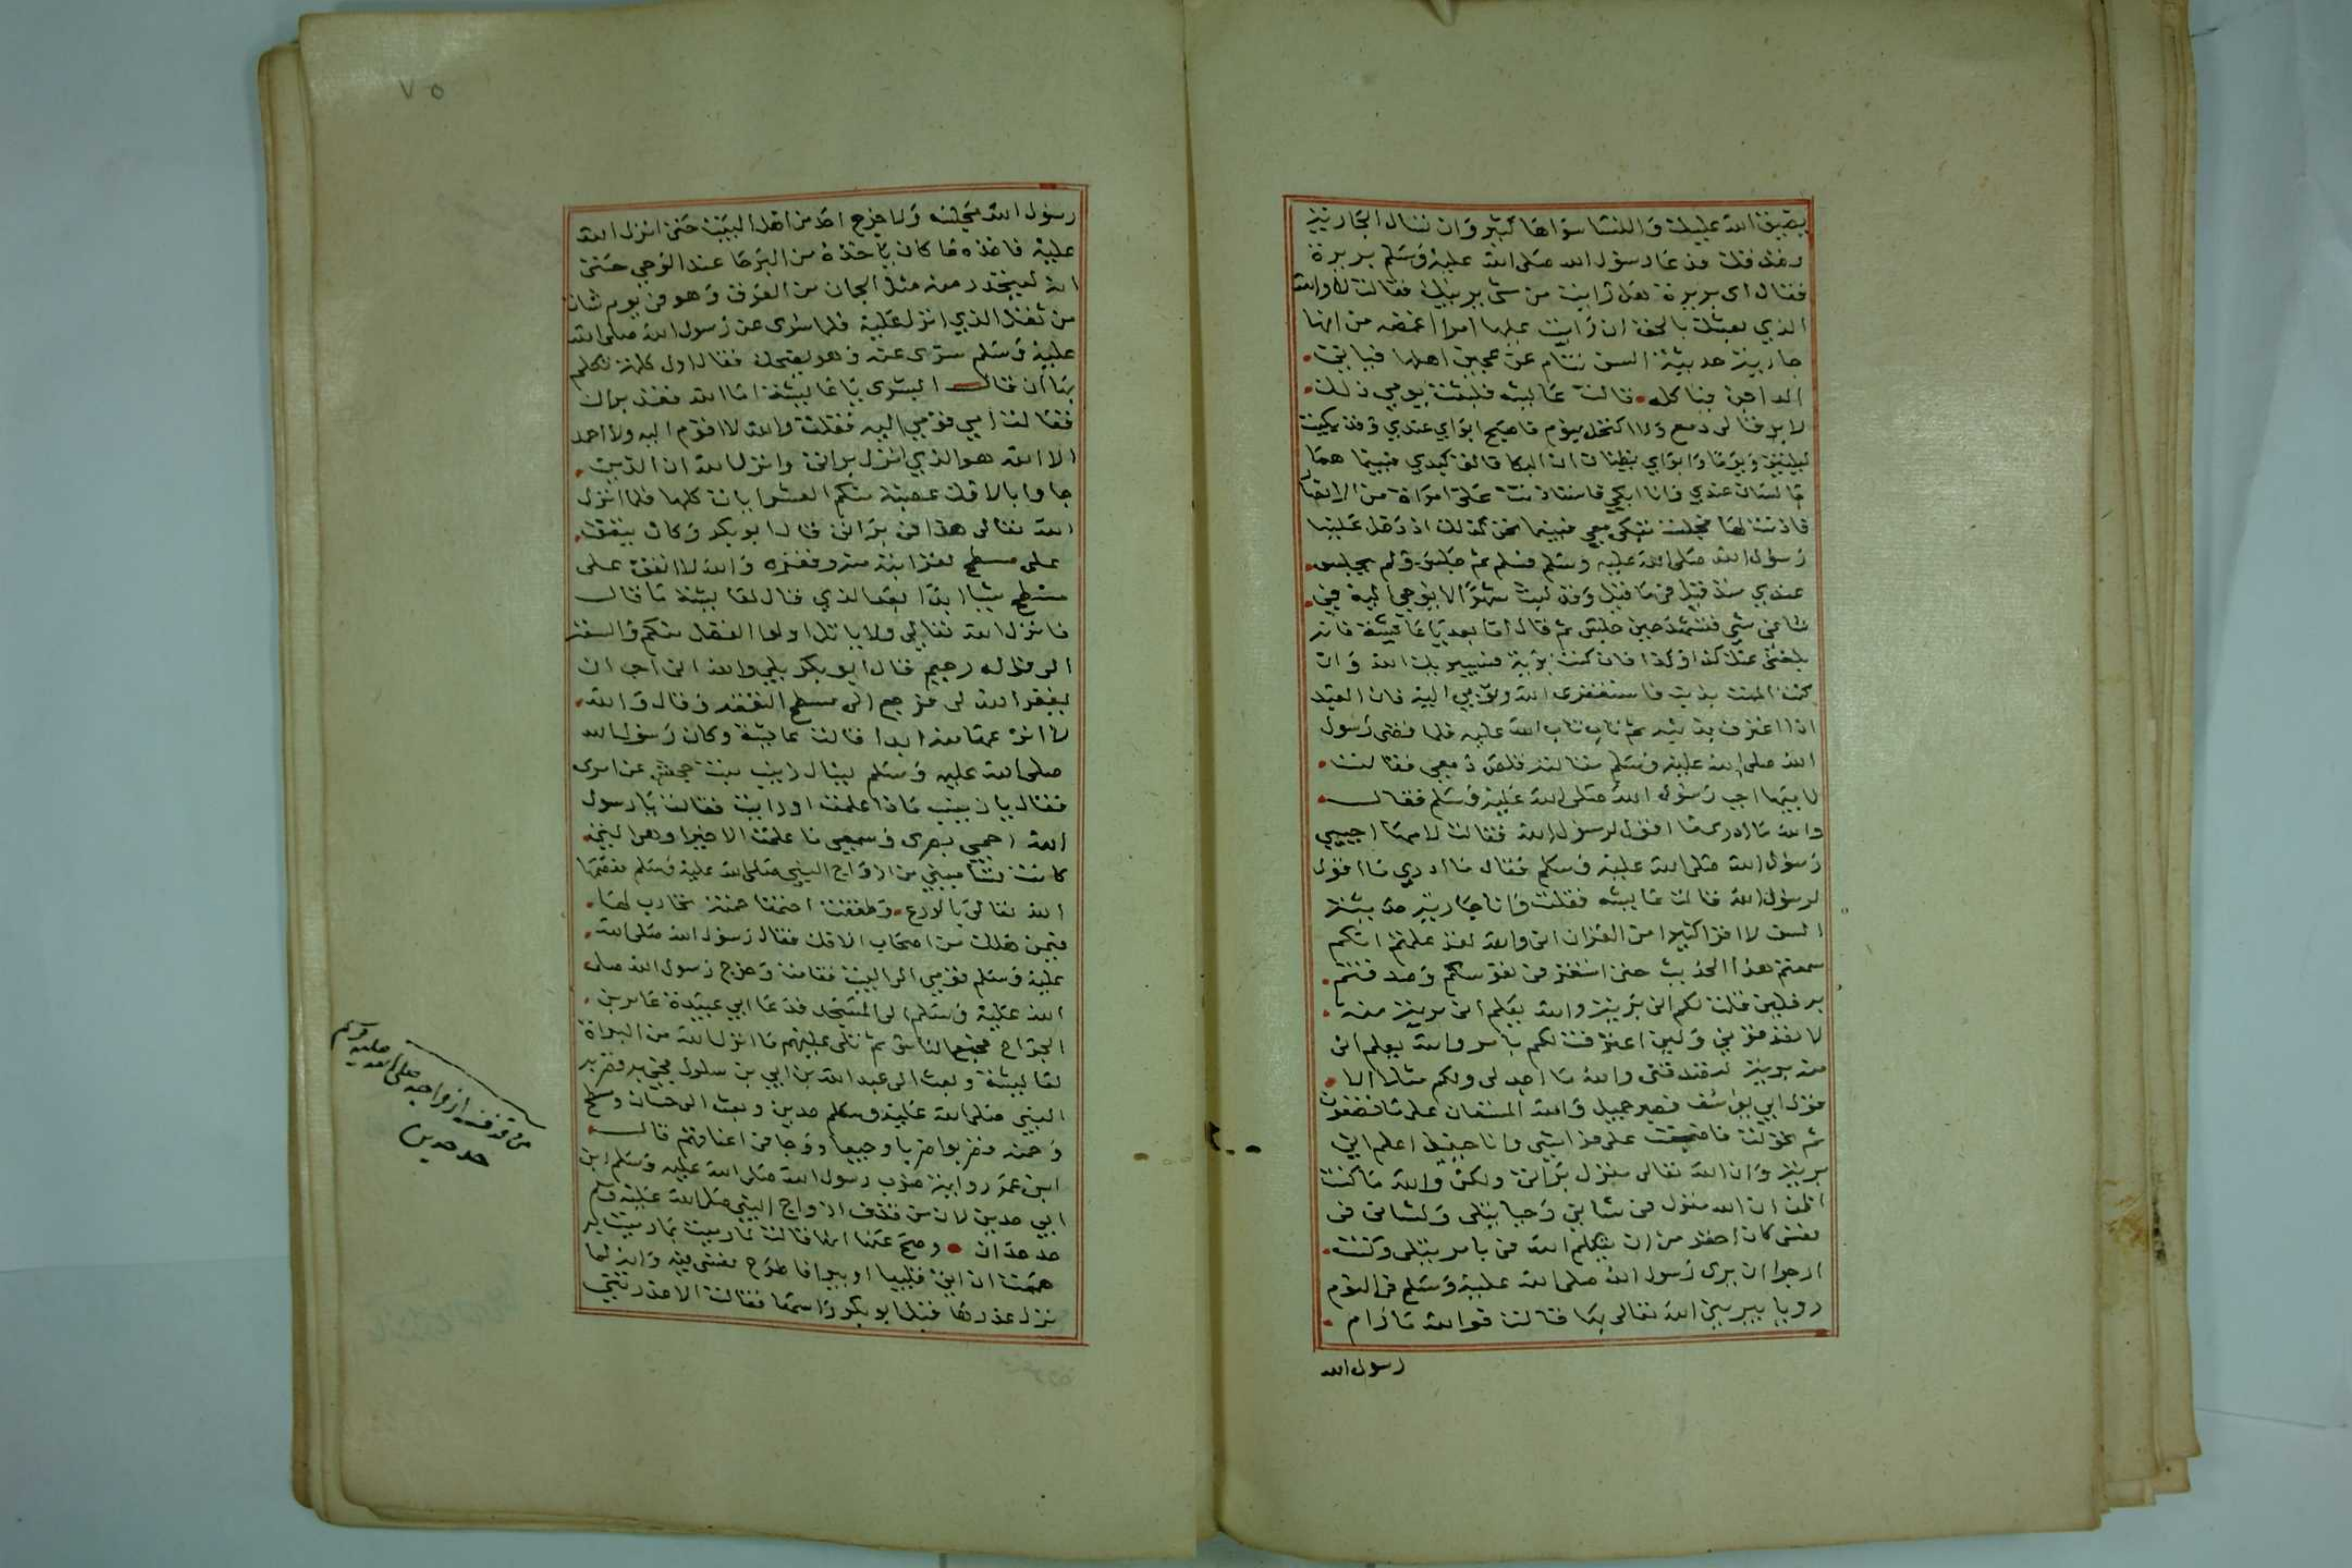 يضيق الله عليك والنسا سواها كثير وان تسال الجارية
فدعا رسول الله صلى الله عليه وسلم بريرة
فقال اى بريرة هل رايت من شى يريبك فقالت لا والله
الذي بعثك بالحق ان رايت عليها امرا اغمضه من انها
جارية حديثة السن تنام عن عجين اهلها فياتى
الداجن فياكله قالت عايشه فلبثت يومي ذلك
لا يرقا لى دمع ولا اكتحل بنوم فاصبح ابواي عندي وقد بكيت
ليلتين ويوما وابواي يظنان ان البكا فالق كبدي فبينما هما
جالسان عندي وانا ابكي فاستاذنت على امراة من الانصار
فاذنت لها فجلست تبكى معى فبينما نحن كذلك اذ دخل علينا
رسول الله صلى الله عليه وسلم فسلم ثم جلس ولم يجلس
عندي منذ قيل فى ما قيل وقد لبث شهرا لا يوحى اليه في
شاني شي فتشهد حين جلس ثم قال اما بعد يا عايشة فانه
بلغنى عنك كذا وكذا فان كنت برية فسيبريك الله وان
كنت الممت بذنب فاستغفرى الله وتوبي اليه فان العبد
اذا اعترف بذنبه ثم تاب تاب الله عليه فلما قضى رسول
الله صلى الله عليه وسلم مقالته قلص دمعي فقالت
لابيها اجب رسول الله صلى الله عليه وسلم فقال
والله ما ادرى ما اقول لرسول الله فقالت لامها اجيبي
رسول الله صلى الله عليه وسلم فقال ما ادري ما اقول
لرسول الله قالت عايشه فقلت وانا جارية حديثة
السن لا اقرا كثيرا من القران انى والله لقد علمتم انكم
سمعتم هذا الحديث حتى استقر فى نفوسكم وصدقتم
به فلين قلت لكم انى برية والله يعلم انى برية منه
لا تصدقوني ولين اعترفت لكم بامر والله يعلم انى
منه برية لتصدقنى والله ما اجد لى ولكم مثلا الا
قول ابي يوسف فصبر جميل والله المستعان على ما تصفون
ثم تحولت فاضجعت على فراشي وانا حينيذ اعلم انى
برية وان الله تعالى منزل براتى ولكن والله ما كنت
اظن ان الله منزل فى شانى وحيا يتلى ولشانى فى
نفسى كان احقر من ان يتكلم الله فى بامر يتلى وكنت
ارجوا ان يرى رسول الله صلى الله عليه وسلم فى النوم
رويا يبريني الله تعالى بها قالت فوالله ما رام
رسول الله
٧٥
رسول الله مجلسه ولا خرج احد من اهل البيت حتى انزل الله
عليه فاخذه ما كان ياخذه من البرحا عند الوحى حتى
انه ليتحدر منه مثل الجمان من العرق وهو فى يوم شات
من ثقل الذي انزل عليه فلما سرى عن رسول الله صلى الله
عليه وسلم سرى عنه وهو يضحك فقال اول كلمة تكلم
بها ان قال ابشرى يا عايشة اما الله فقد براك
فقالت امي قومي اليه فقلت والله لا اقوم اليه ولا احمد
الا الله هو الذي انزل براتى وانزل الله ان الذين
جاوا بالافك عصبة منكم العشر ايات كلها فلما انزل
الله تعالى هذا فى براتى قال ابو بكر وكان ينفق
على مسطح لقرابته منه وفقره والله لا انفق على
مسطح شيا ابدا بعد الذي قال لعايشة ما قال
فانزل الله تعالى ولا ياتل اولوا الفضل منكم والسعة
الى قوله رحيم قال ابو بكر بلى والله انى احب ان
يغفر الله لى فرجع الى مسطح النفقة وقال والله
لا انزعها منه ابدا قالت عايشة وكان رسول الله
صلى الله عليه وسلم يسال زينب بنت جحش عن امرى
فقال يا زينب ماذا علمت او رايت فقالت يا رسول
الله احمي بصرى وسمعي ما علمت الا خيرا وهى التى
كانت تساميني من ازواج النبي صلى الله عليه وسلم فعصمها
الله تعالى بالورع وطفقت اختها حمنة تحارب لها
فيمن هلك من اصحاب الافك فقال رسول الله صلى الله
عليه وسلم قومي الى البيت فقامت وخرج رسول الله صلى
الله عليه وسلم الى المسجد فدعا ابي عبيدة عامر بن
الجراح فجمع الناس ثم تلى عليهم ما انزل الله من البراة
لعايشة وبعث الى عبد الله بن ابي بن سلول فجي به فضربه
النبي صلى الله عليه وسلم حدين وبعث الى حسان ومسطح
وحمنه فضربوا ضربا وجيعا ووجا فى اعناقهم قال
ابن عمر رواية ضرب رسول الله صلى الله عليه وسلم ابن
ابي حدين لان من قذف ازواج النبي صلى الله عليه وسلم
حد حدان وصح عنها انها قالت
هممت ان اتى قليبا او بيرا فاطرح نفسى فيه وانه لما
نزل عذرها قبل ابو بكر راسها فقالت الا عذرتنى
من قذف ازواجه صلى الله عليه وسلم
حد حدين